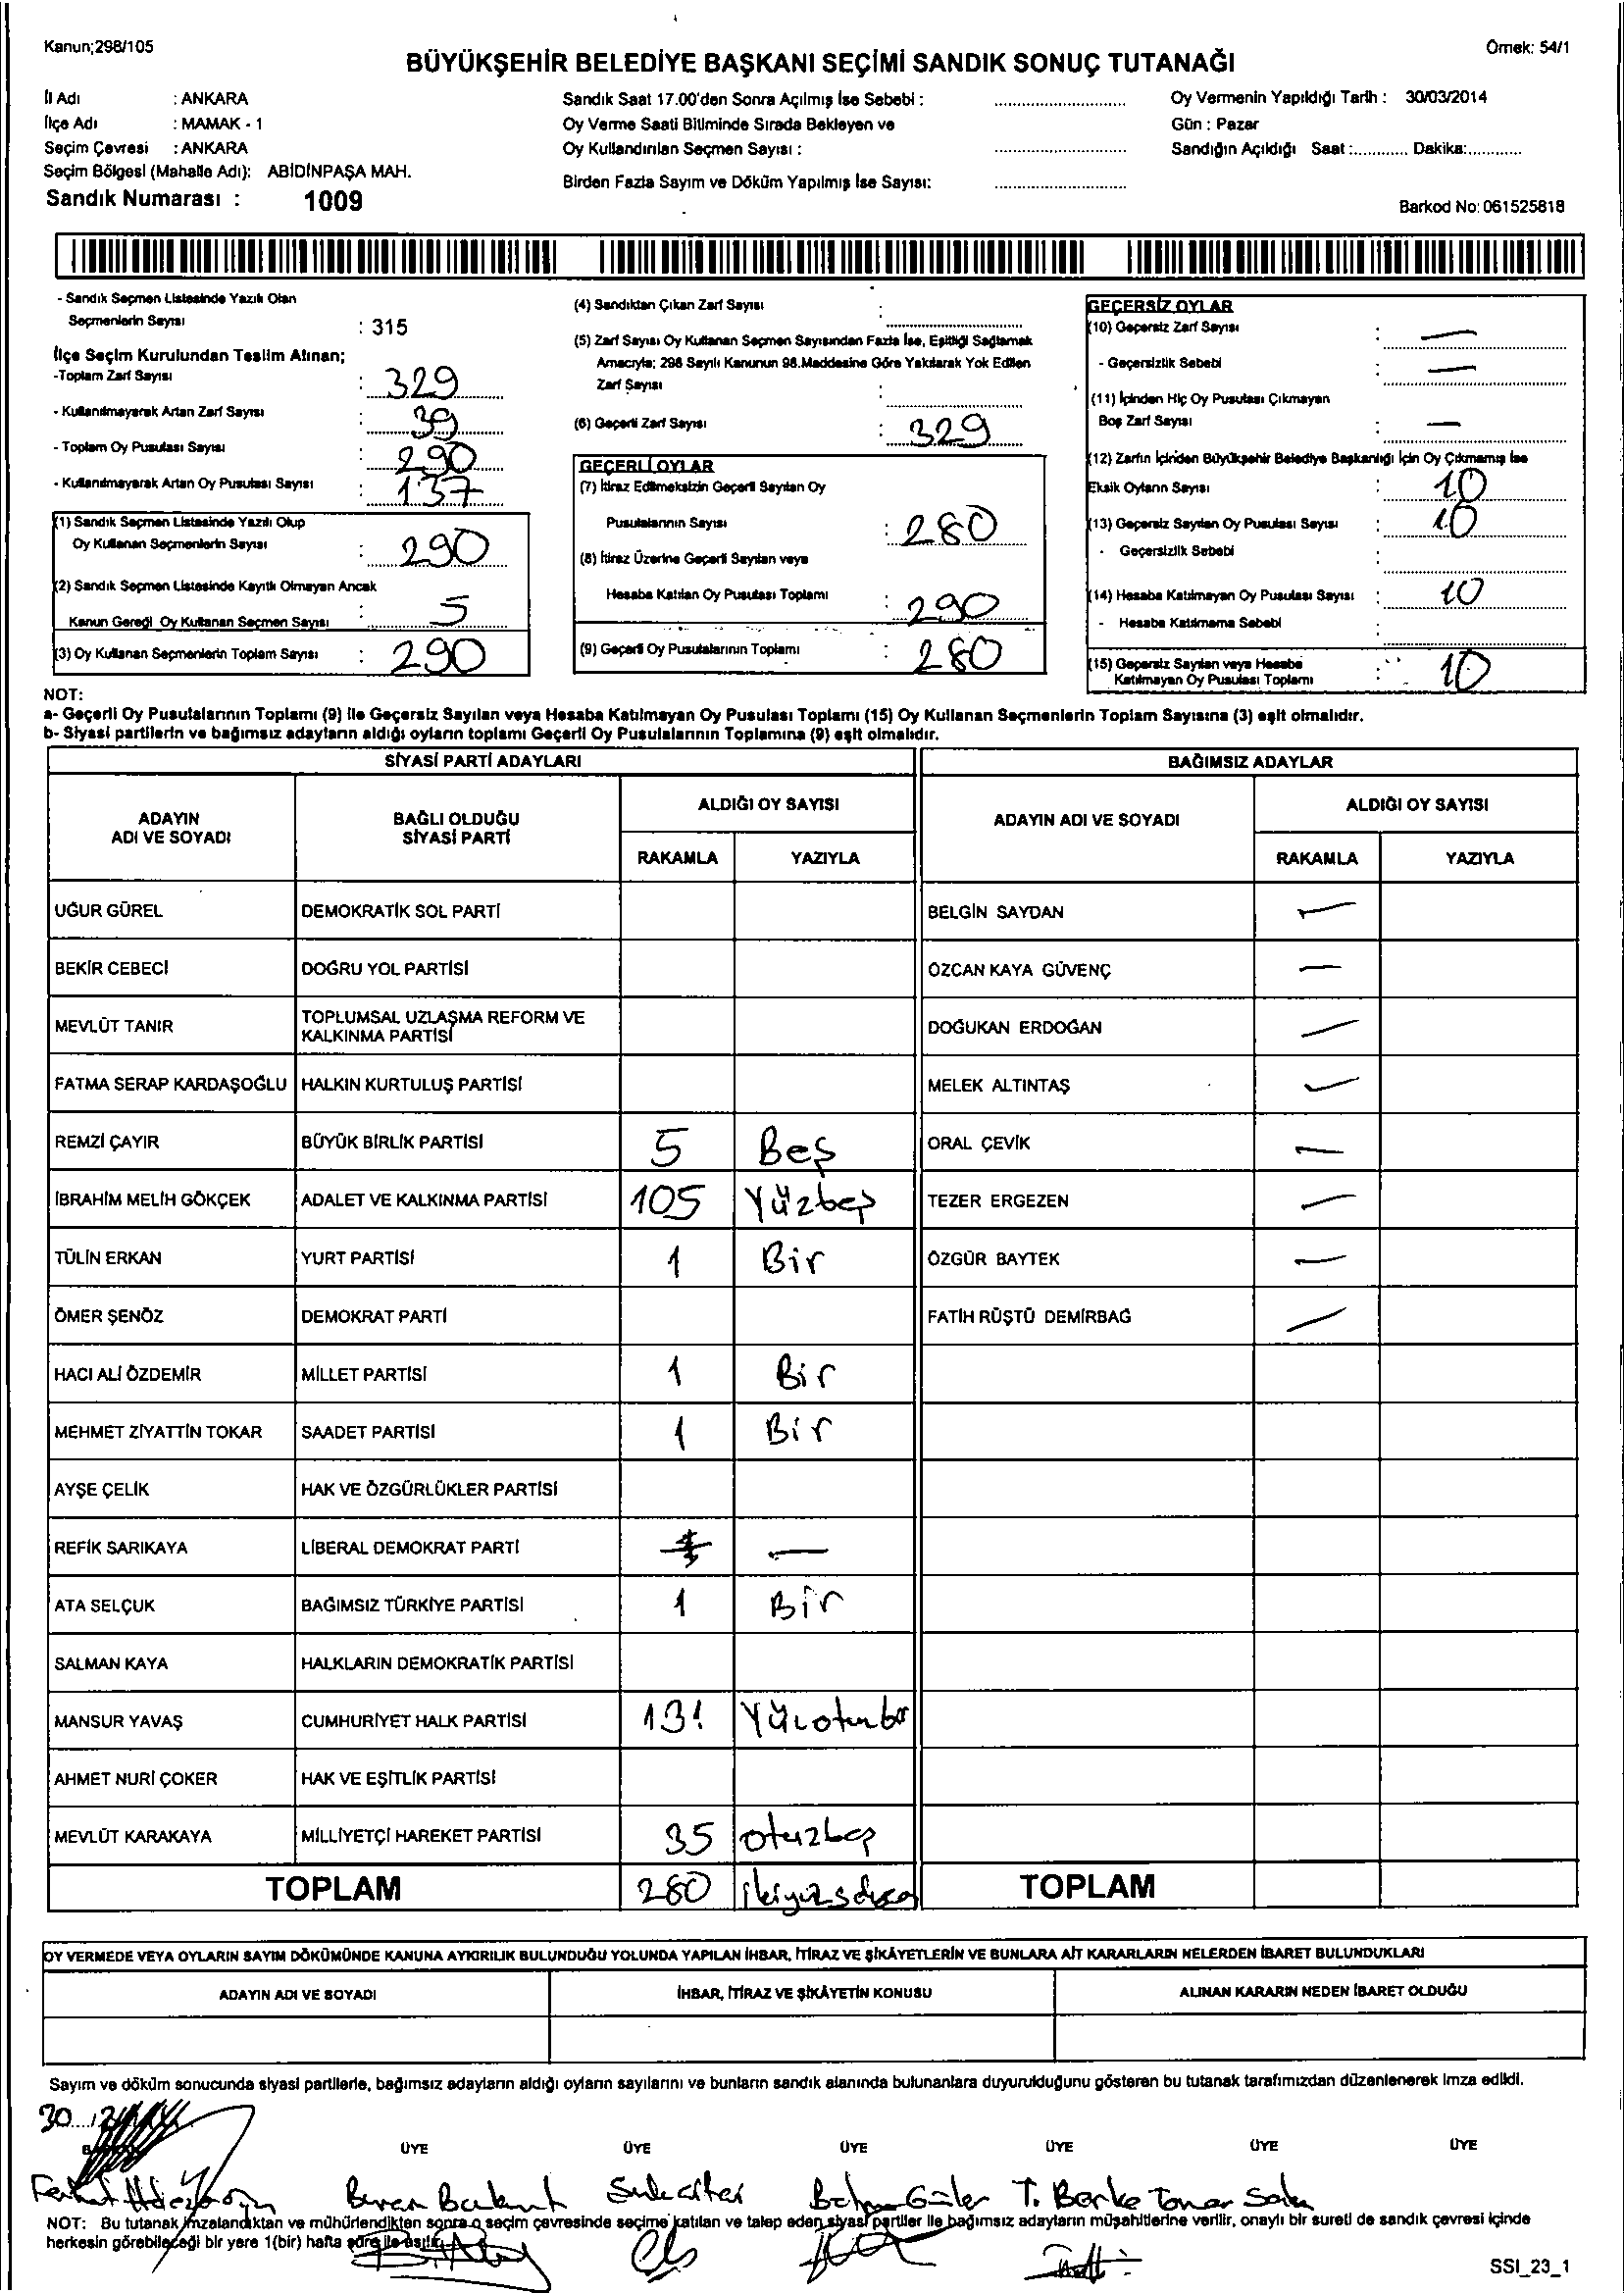 Kanun;298/105
Örnek: 54/1
BÜYÜKŞEHİR BELEDİYE BAŞKANI SEÇİMİ SANDIK SONUÇ TUTANAĞI
İl Adı : ANKARA
İlçe Adı : MAMAK - 1
Seçim Çevresi : ANKARA
Seçim Bölgesi (Mahalle Adı): ABİDİNPAŞA MAH.
Sandık Numarası : 1009
Sandık Saat 17.00'den Sonra Açılmış İse Sebebi :
Oy Verme Saati Bitiminde Sırada Bekleyen ve
Oy Kullandırılan Seçmen Sayısı :
Birden Fazla Sayım ve Döküm Yapılmış İse Sayısı:
Oy Vermenin Yapıldığı Tarih : 30/03/2014
Gün : Pazar
Sandığın Açıldığı Saat :............ Dakika:............
Barkod No: 061525818
- Sandık Seçmen Listesinde Yazılı Olan
Seçmenlerin Sayısı : 315
İlçe Seçim Kurulundan Teslim Alınan;
-Toplam Zarf Sayısı : 329
- Kullanılmayarak Artan Zarf Sayısı : 39
- Toplam Oy Pusulası Sayısı : 290
- Kullanılmayarak Artan Oy Pusulası Sayısı : 137
(1) Sandık Seçmen Listesinde Yazılı Olup
Oy Kullanan Seçmenlerin Sayısı : 290
(2) Sandık Seçmen Listesinde Kayıtlı Olmayan Ancak
Kanun Gereği Oy Kullanan Seçmen Sayısı : 5
(3) Oy Kullanan Seçmenlerin Toplam Sayısı : 290
(4) Sandıktan Çıkan Zarf Sayısı :
(5) Zarf Sayısı Oy Kullanan Seçmen Sayısından Fazla İse, Eşitliği Sağlamak
Amacıyla; 298 Sayılı Kanunun 98.Maddesine Göre Yakılarak Yok Edilen
Zarf Sayısı :
(6) Geçerli Zarf Sayısı : 329
GEÇERLİ OYLAR
(7) İtiraz Edilmeksizin Geçerli Sayılan Oy
Pusulalarının Sayısı : 280
(8) İtiraz Üzerine Geçerli Sayılan veya
Hesaba Katılan Oy Pusulası Toplamı : 290
(9) Geçerli Oy Pusulalarının Toplamı : 280
GEÇERSİZ OYLAR
(10) Geçersiz Zarf Sayısı : —
- Geçersizlik Sebebi : —
(11) İçinden Hiç Oy Pusulası Çıkmayan
Boş Zarf Sayısı : —
(12) Zarfın İçinden Büyükşehir Belediye Başkanlığı İçin Oy Çıkmamış İse
Eksik Oyların Sayısı : 10
(13) Geçersiz Sayılan Oy Pusulası Sayısı : 10
- Geçersizlik Sebebi :
(14) Hesaba Katılmayan Oy Pusulası Sayısı : 10
- Hesaba Katılmama Sebebi :
(15) Geçersiz Sayılan veya Hesaba
Katılmayan Oy Pusulası Toplamı : 10
NOT:
a- Geçerli Oy Pusulalarının Toplamı (9) ile Geçersiz Sayılan veya Hesaba Katılmayan Oy Pusulası Toplamı (15) Oy Kullanan Seçmenlerin Toplam Sayısına (3) eşit olmalıdır.
b- Siyasi partilerin ve bağımsız adayların aldığı oyların toplamı Geçerli Oy Pusulalarının Toplamına (9) eşit olmalıdır.
SİYASİ PARTİ ADAYLARI
BAĞIMSIZ ADAYLAR
ADAYIN ADI VE SOYADI
BAĞLI OLDUĞU SİYASİ PARTİ
ALDIĞI OY SAYISI
RAKAMLA YAZIYLA
ADAYIN ADI VE SOYADI
ALDIĞI OY SAYISI
RAKAMLA YAZIYLA
UĞUR GÜREL DEMOKRATİK SOL PARTİ BELGİN SAYDAN —
BEKİR CEBECİ DOĞRU YOL PARTİSİ ÖZCAN KAYA GÜVENÇ —
MEVLÜT TANIR TOPLUMSAL UZLAŞMA REFORM VE KALKINMA PARTİSİ DOĞUKAN ERDOĞAN —
FATMA SERAP KARDAŞOĞLU HALKIN KURTULUŞ PARTİSİ MELEK ALTINTAŞ —
REMZİ ÇAYIR BÜYÜK BİRLİK PARTİSİ 5 Beş ORAL ÇEVİK —
İBRAHİM MELİH GÖKÇEK ADALET VE KALKINMA PARTİSİ 105 Yüzbeş TEZER ERGEZEN —
TÜLİN ERKAN YURT PARTİSİ 1 Bir ÖZGÜR BAYTEK —
ÖMER ŞENÖZ DEMOKRAT PARTİ FATİH RÜŞTÜ DEMİRBAĞ —
HACI ALİ ÖZDEMİR MİLLET PARTİSİ 1 Bir
MEHMET ZİYATTİN TOKAR SAADET PARTİSİ 1 Bir
AYŞE ÇELİK HAK VE ÖZGÜRLÜKLER PARTİSİ
REFİK SARIKAYA LİBERAL DEMOKRAT PARTİ —
ATA SELÇUK BAĞIMSIZ TÜRKİYE PARTİSİ 1 Bir
SALMAN KAYA HALKLARIN DEMOKRATİK PARTİSİ
MANSUR YAVAŞ CUMHURİYET HALK PARTİSİ 131 Yüzotuzbir
AHMET NURİ ÇOKER HAK VE EŞİTLİK PARTİSİ
MEVLÜT KARAKAYA MİLLİYETÇİ HAREKET PARTİSİ 35 otuzbeş
TOPLAM 280 ikiyüzseksen TOPLAM
OY VERMEDE VEYA OYLARIN SAYIM DÖKÜMÜNDE KANUNA AYKIRILIK BULUNDUĞU YOLUNDA YAPILAN İHBAR, İTİRAZ VE ŞİKÂYETLERİN VE BUNLARA AİT KARARLARIN NELERDEN İBARET BULUNDUKLARI
ADAYIN ADI VE SOYADI İHBAR, İTİRAZ VE ŞİKÂYETİN KONUSU ALINAN KARARIN NEDEN İBARET OLDUĞU
Sayım ve döküm sonucunda siyasi partilerle, bağımsız adayların aldığı oyların sayılarını ve bunların sandık alanında bulunanlara duyurulduğunu gösteren bu tutanak tarafımızdan düzenlenerek imza edildi.
30
ÜYE ÜYE ÜYE ÜYE ÜYE ÜYE
T. Berke Tomar
NOT: Bu tutanak imzalandıktan ve mühürlendikten sonra o seçim çevresinde seçime katılan ve talep eden siyasi partiler ile bağımsız adayların müşahitlerine verilir, onaylı bir sureti de sandık çevresi içinde
herkesin görebileceği bir yere 1(bir) hafta süre ile asılır.
SSI_23_1